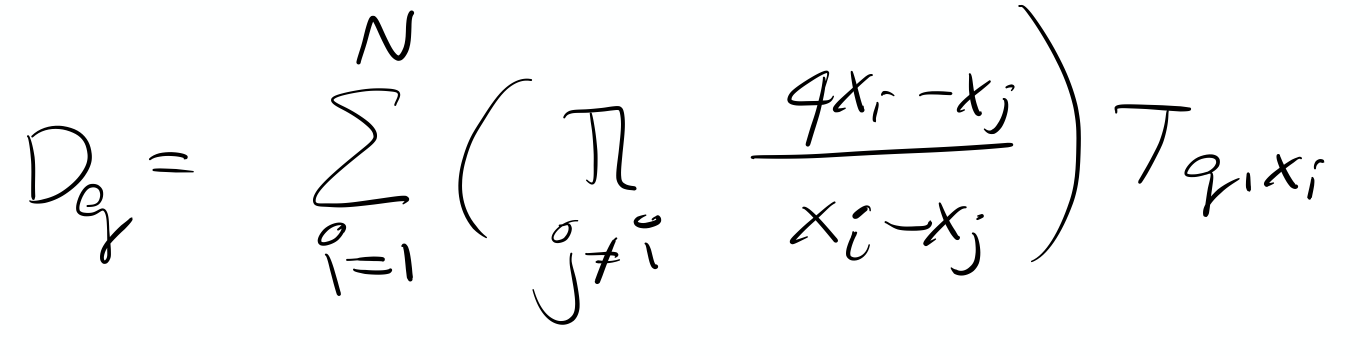 D_q = \sum_{i=1}^{N} \left( \prod_{j \neq i} \frac{qx_i - x_j}{x_i - x_j} \right) T_{q, x_i}